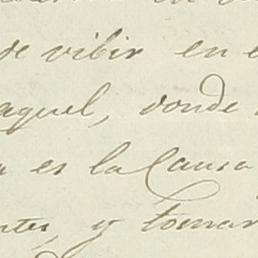 de vibir en
aquel, donde
es la Causa
y tomar